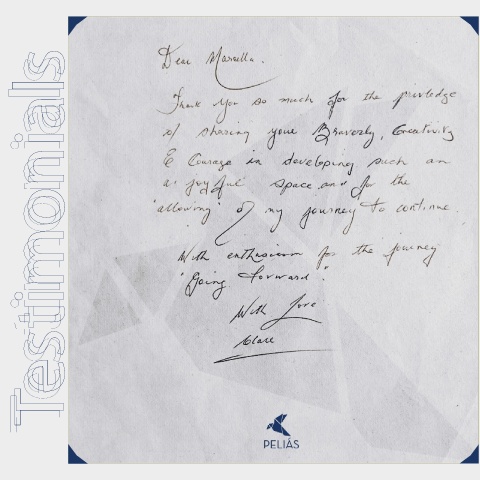 Testimonials
Dear Marcella.
Thank you so much for the priviledge
of sharing your Braverly, Creativity
& Courage in developing such an
a "joyful" space and for the
'allowing' of my journey to continue.
With enthusiasm for the journey
"Going forward".
With Love
Clare
PELIÁS